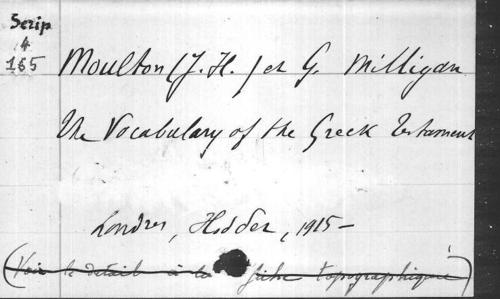 Scrip
4
165
Moulton (J. H.) et G. Milligan
The Vocabulary of the Greek Testament
Londres, Hodder, 1915 –
(Voir le détail à la fiche topographique)